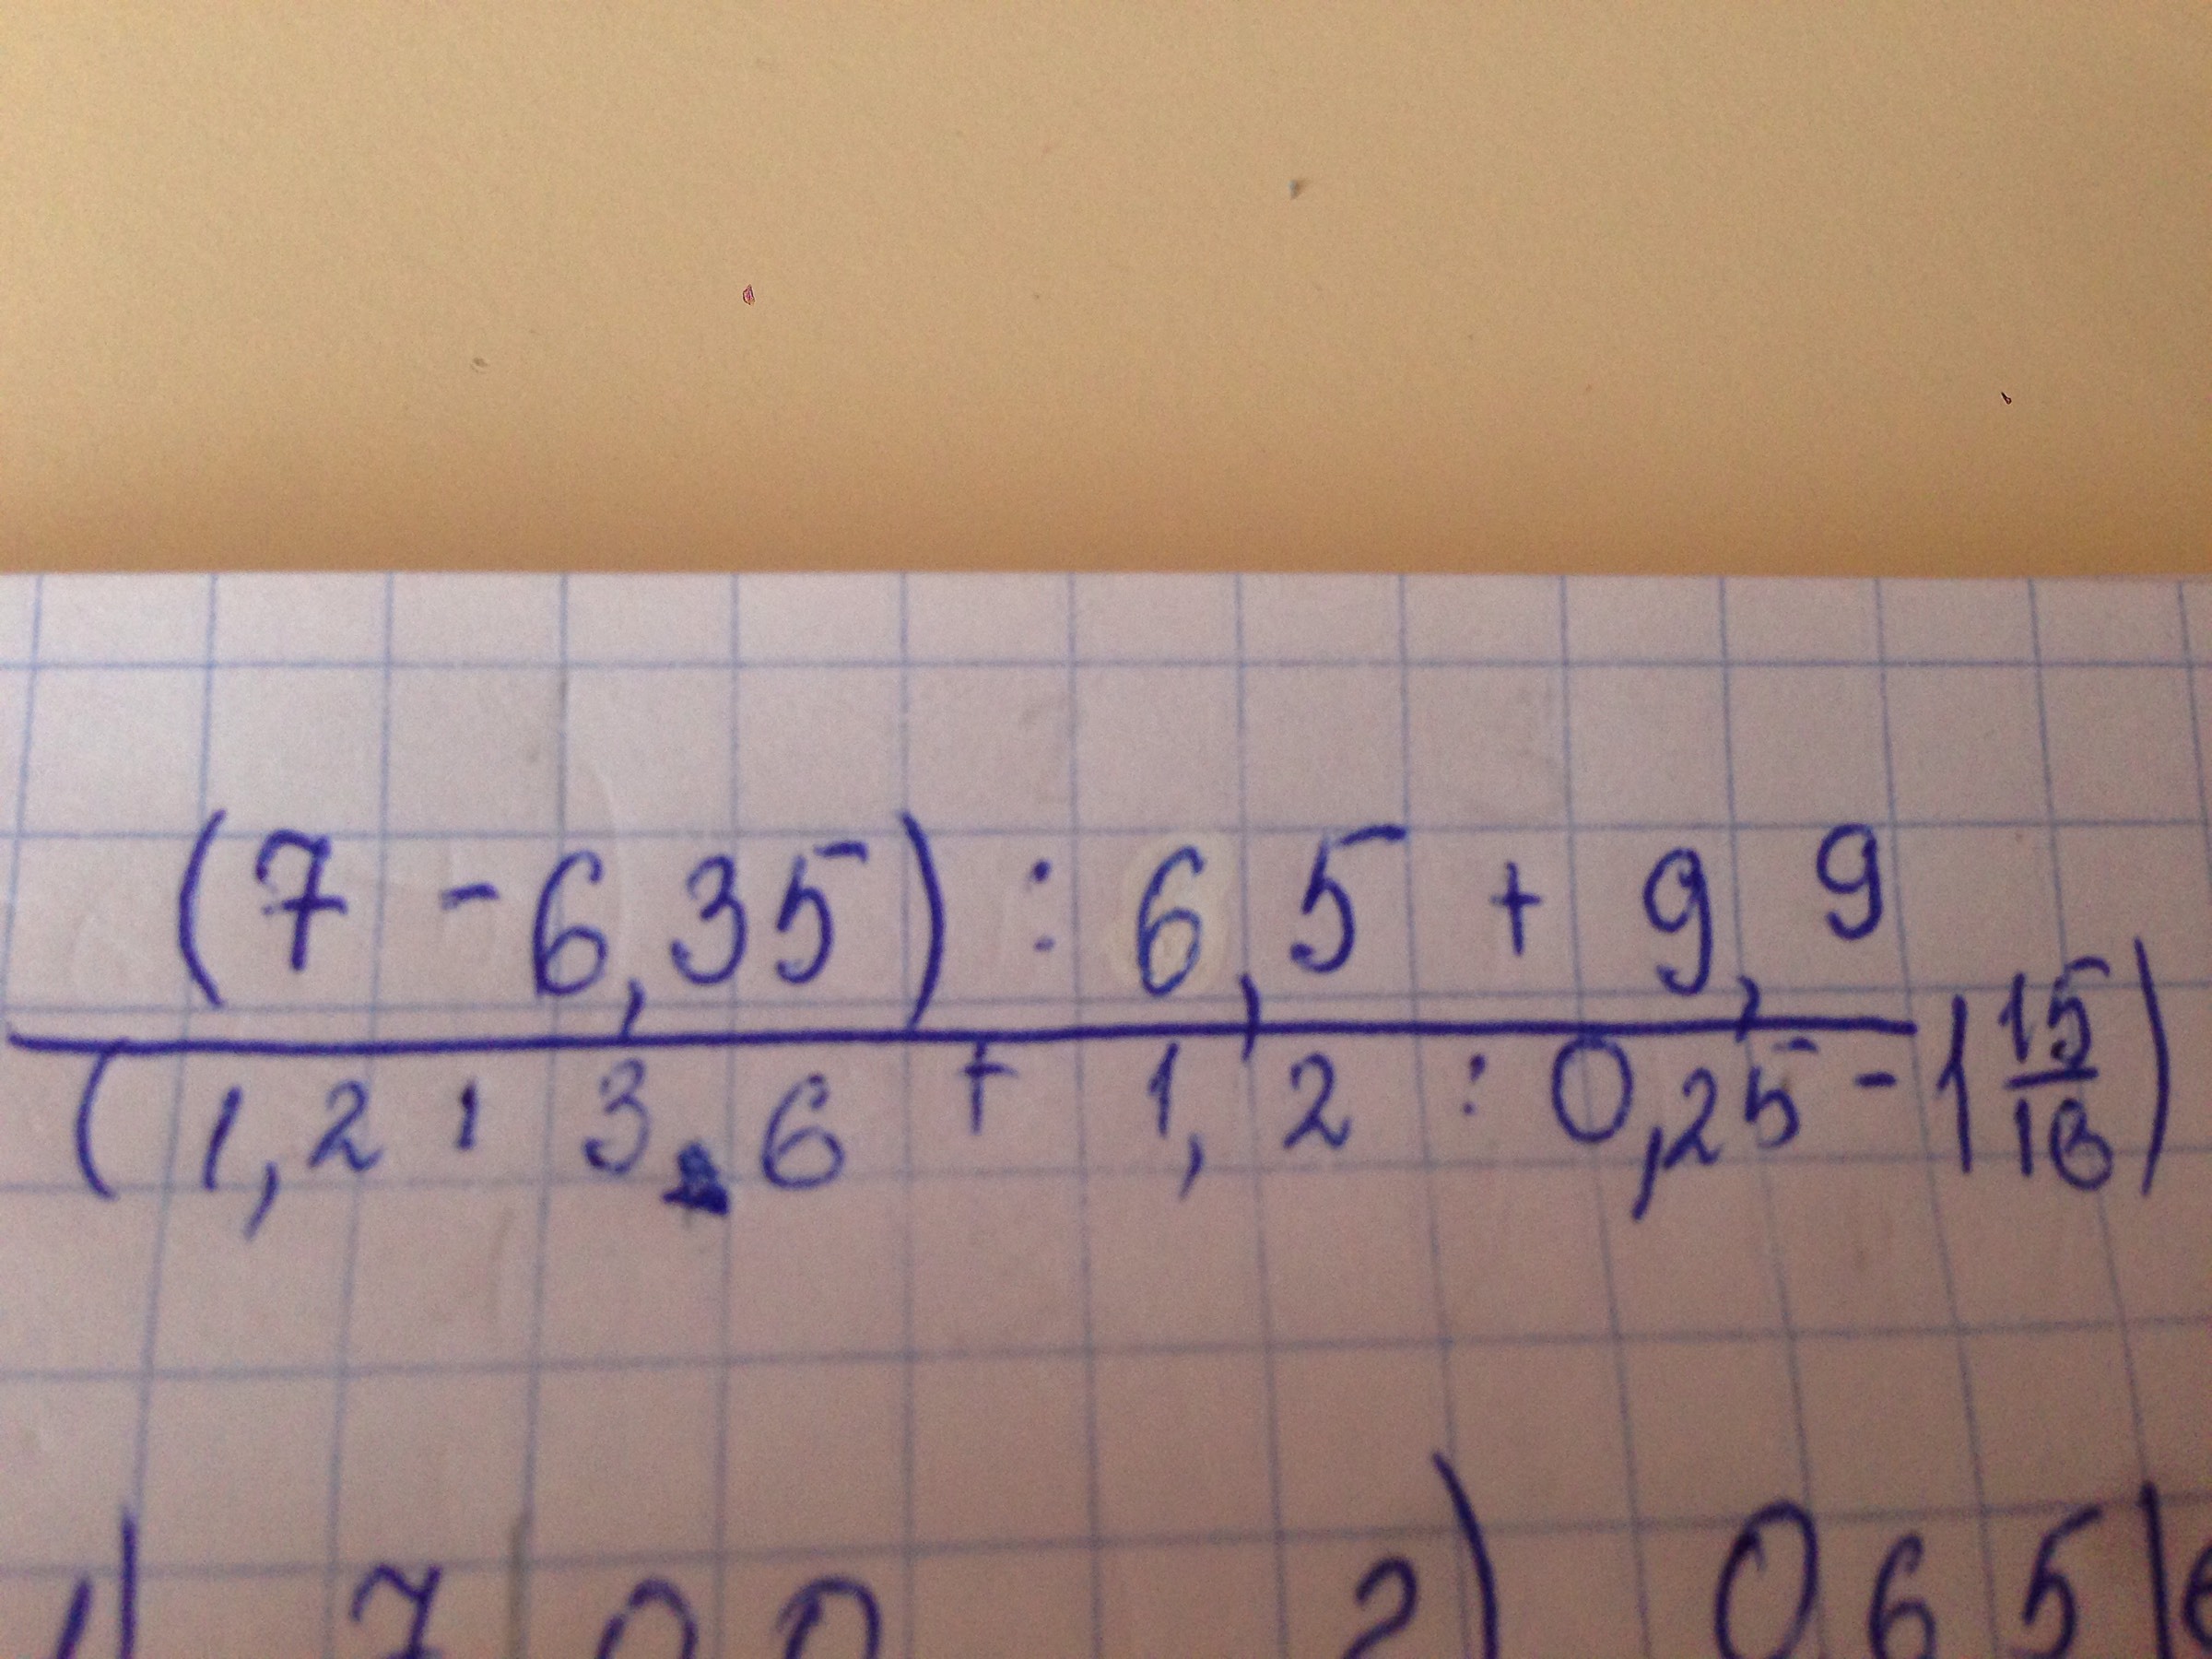 (7 - 6,35) : 6,5 + 9,9
(1,2 : 3,6 + 1,2 : 0,25 - 1 15/16)
1) 7 0 0 2) 0 6 5